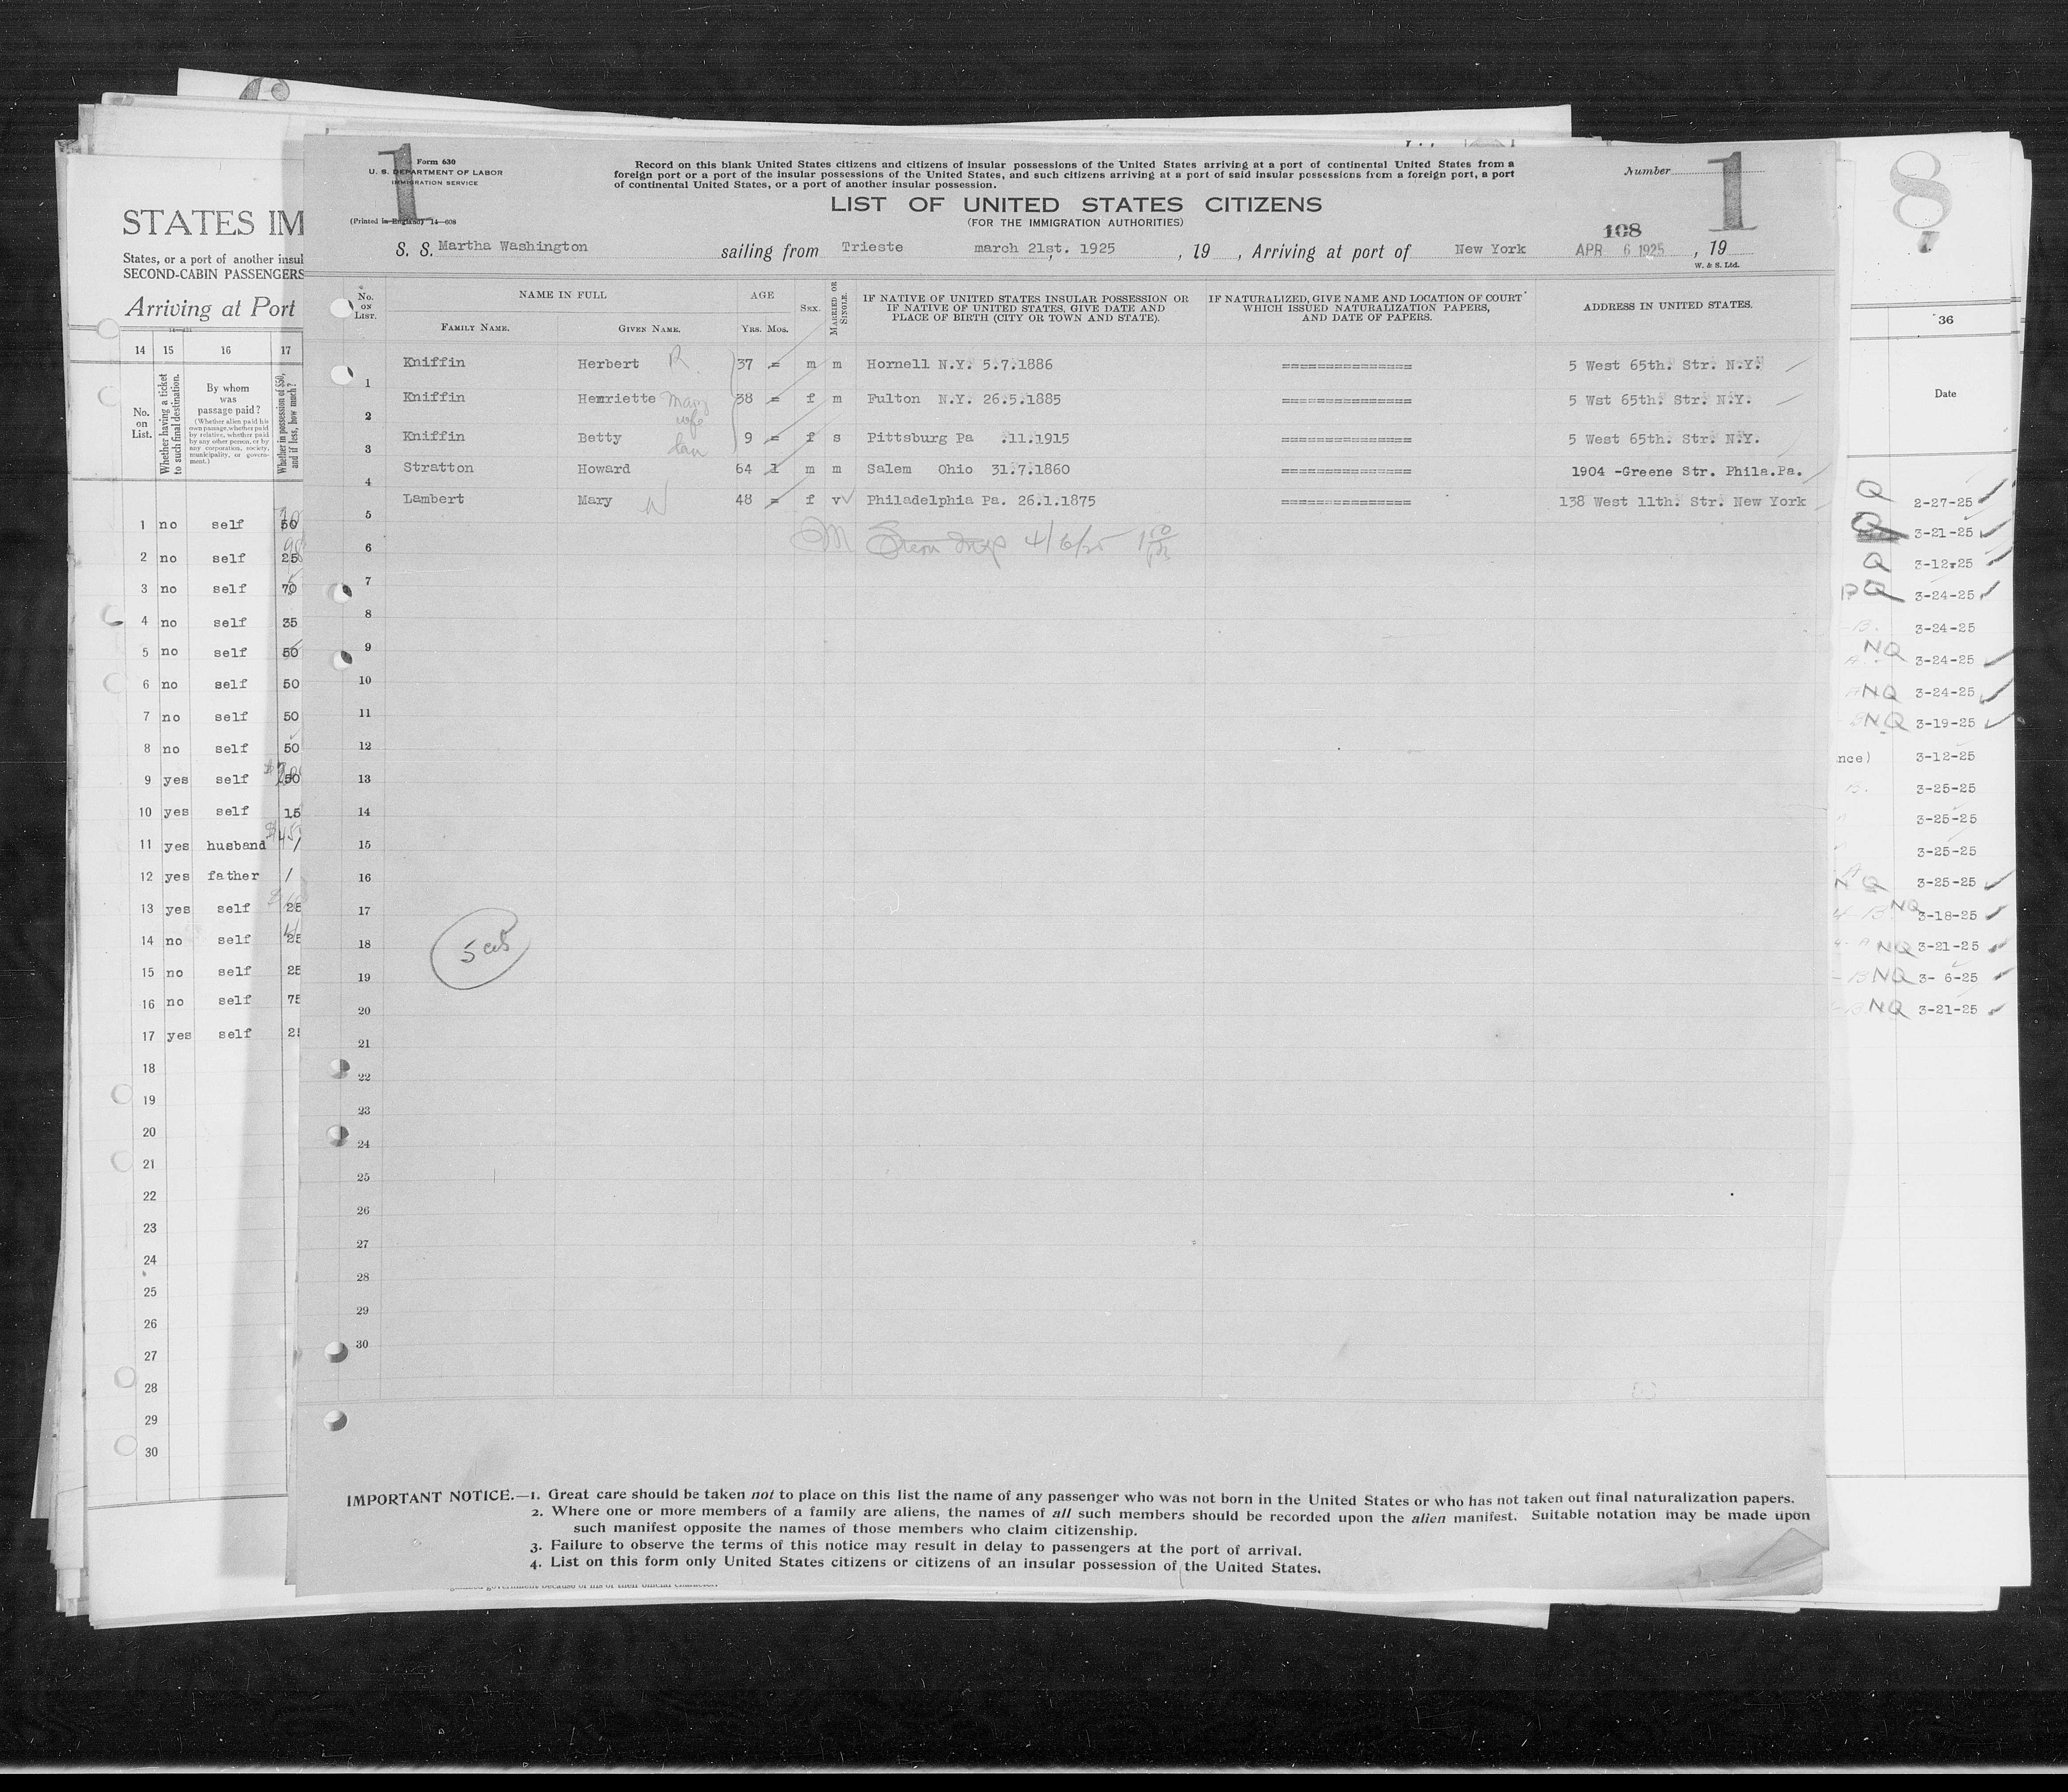 1
Form 630
U. S. DEPARTMENT OF LABOR
IMMIGRATION SERVICE
(Printed in England) 14—608
Record on this blank United States citizens and citizens of insular possessions of the United States arriving at a port of continental United States from a
foreign port or a port of the insular possessions of the United States, and such citizens arriving at a port of said insular possessions from a foreign port, a port
of continental United States, or a port of another insular possession.
Number 1
LIST OF UNITED STATES CITIZENS
(FOR THE IMMIGRATION AUTHORITIES)
108
S. S. Martha Washington sailing from Trieste march 21st. 1925, 19 , Arriving at port of New York APR 6 1925, 19
W. & S. Ltd.
No. ON LIST. NAME IN FULL AGE SEX. MARRIED OR SINGLE. IF NATIVE OF UNITED STATES INSULAR POSSESSION OR IF NATIVE OF UNITED STATES, GIVE DATE AND PLACE OF BIRTH (CITY OR TOWN AND STATE). IF NATURALIZED, GIVE NAME AND LOCATION OF COURT WHICH ISSUED NATURALIZATION PAPERS, AND DATE OF PAPERS. ADDRESS IN UNITED STATES.
FAMILY NAME. GIVEN NAME. YRS. MOS.
Kniffin Herbert R. 37 = m m Hornell N.Y. 5.7.1886 =============== 5 West 65th. Str. N.Y.
1
Kniffin Henriette Mary wife 38 = f m Fulton N.Y. 26.5.1885 =============== 5 Wst 65th. Str. N.Y.
2
Kniffin Betty dau 9 = f s Pittsburg Pa .11.1915 =============== 5 West 65th. Str. N.Y.
3
Stratton Howard 64 1 m m Salem Ohio 31.7.1860 =============== 1904 -Greene Str. Phila.Pa.
4
Lambert Mary W 48 = f v Philadelphia Pa. 26.1.1875 =============== 138 West 11th. Str. New York
5
4/6/25
6
7
8
9
10
11
12
13
14
15
16
17
18
19
20
21
22
23
24
25
26
27
28
29
30
IMPORTANT NOTICE.—1. Great care should be taken not to place on this list the name of any passenger who was not born in the United States or who has not taken out final naturalization papers.
2. Where one or more members of a family are aliens, the names of all such members should be recorded upon the alien manifest. Suitable notation may be made upon
such manifest opposite the names of those members who claim citizenship.
3. Failure to observe the terms of this notice may result in delay to passengers at the port of arrival.
4. List on this form only United States citizens or citizens of an insular possession of the United States.
STATES IM
States, or a port of another insul
SECOND-CABIN PASSENGERS
Arriving at Port
14 15 16 17
No. on List. Whether having a ticket to such final destination. By whom was passage paid? (Whether alien paid his own passage, whether paid by relative, whether paid by any other person, or by any corporation, society, municipality, or government.) Whether in possession of $50, and if less, how much?
1 no self 50
2 no self 25
3 no self 70
4 no self 35
5 no self 50
6 no self 50
7 no self 50
8 no self 50
9 yes self 50
10 yes self 15
11 yes husband /
12 yes father /
13 yes self 25
14 no self 25
15 no self 25
16 no self 75
17 yes self
18
19
20
21
22
23
24
25
26
27
28
29
30
8
36
Date
Q 2-27-25
3-21-25
Q 3-12-25
3-24-25
3-24-25
NQ 3-24-25
NQ 3-24-25
NQ 3-19-25
nce) 3-12-25
3-25-25
3-25-25
3-25-25
NQ 3-25-25
NQ 3-18-25
NQ 3-21-25
NQ 3- 6-25
NQ 3-21-25